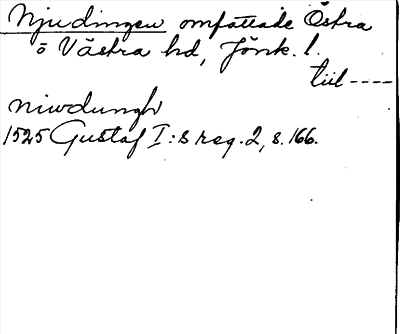 Njudingen omfattade Östra
o Västra hd, Jönk. l.
till ----
niwdungh
1525 Gustaf I:s reg. 2, s. 166.